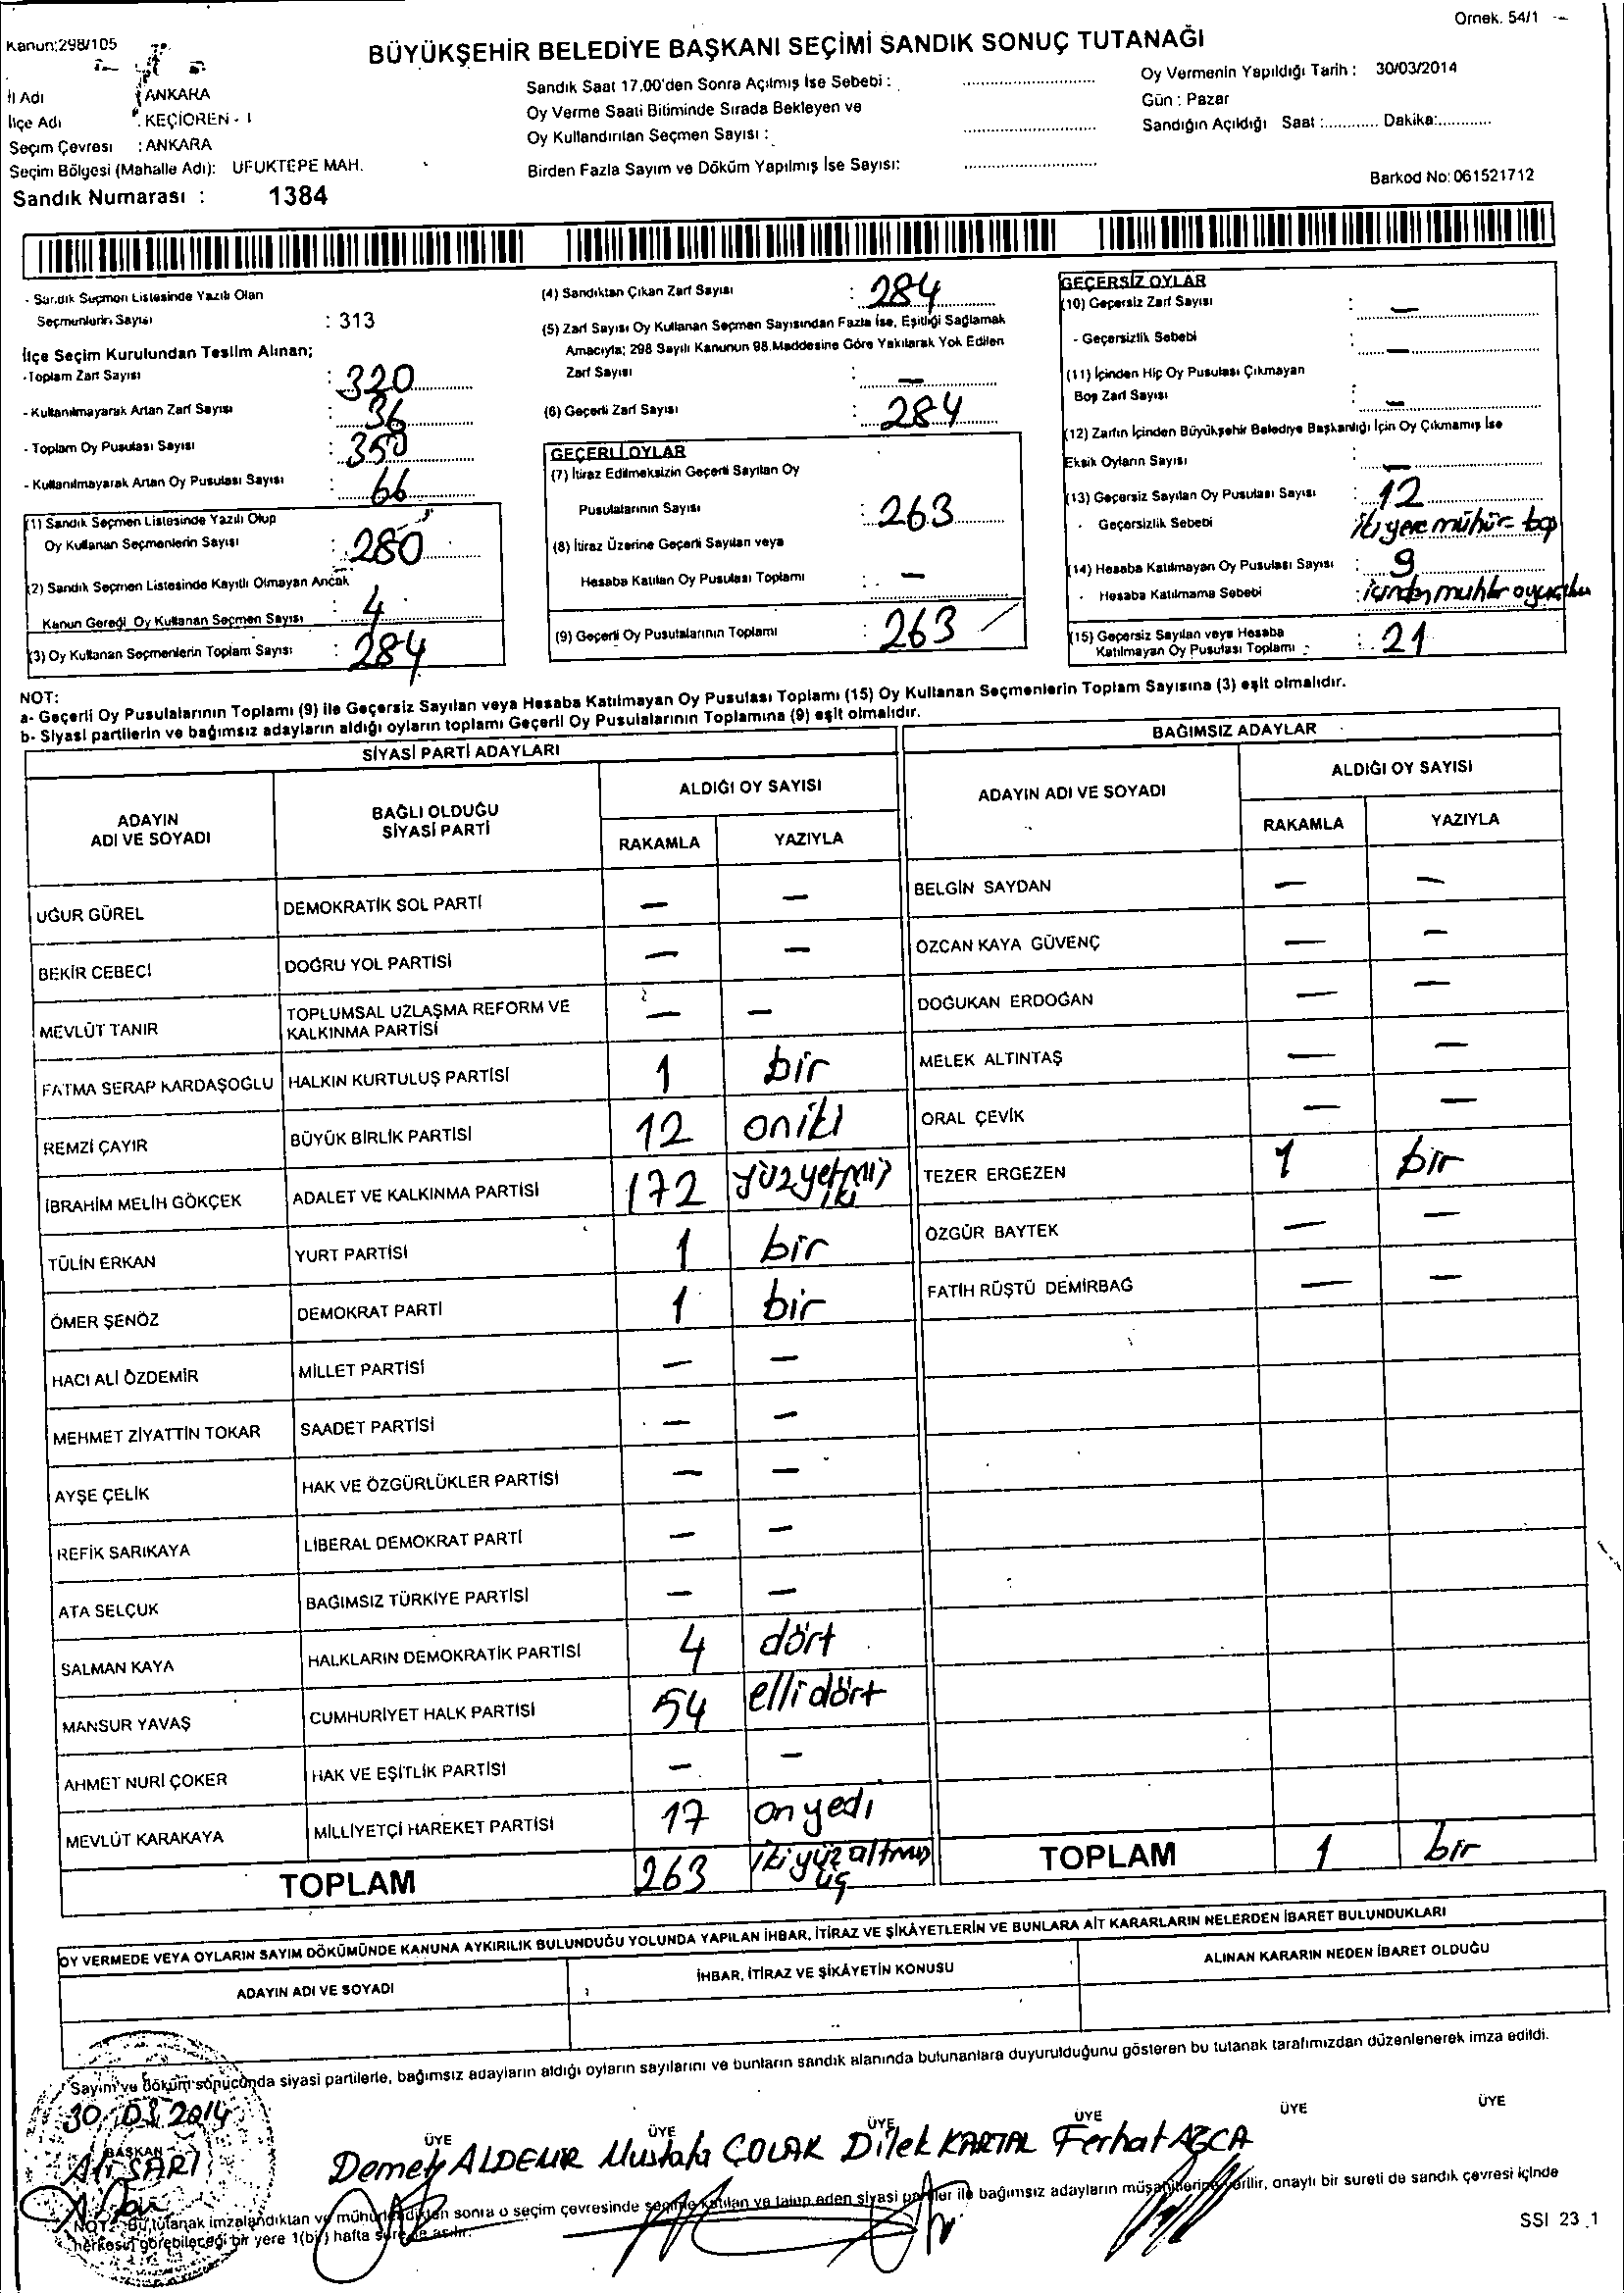 Örnek. 54/1
Kanun:298/105
BÜYÜKŞEHİR BELEDİYE BAŞKANI SEÇİMİ SANDIK SONUÇ TUTANAĞI
İl Adı : ANKARA
İlçe Adı : KEÇİÖREN - 1
Seçim Çevresi : ANKARA
Seçim Bölgesi (Mahalle Adı): UFUKTEPE MAH.
Sandık Numarası : 1384
Sandık Saat 17.00'den Sonra Açılmış İse Sebebi :
Oy Verme Saati Bitiminde Sırada Bekleyen ve
Oy Kullandırılan Seçmen Sayısı :
Birden Fazla Sayım ve Döküm Yapılmış İse Sayısı:
Oy Vermenin Yapıldığı Tarih : 30/03/2014
Gün : Pazar
Sandığın Açıldığı Saat :............ Dakika:............
Barkod No: 061521712
- Sandık Seçmen Listesinde Yazılı Olan
Seçmenlerin Sayısı : 313
İlçe Seçim Kurulundan Teslim Alınan;
-Toplam Zarf Sayısı : 320
- Kullanılmayarak Artan Zarf Sayısı : 36
- Toplam Oy Pusulası Sayısı : 350
- Kullanılmayarak Artan Oy Pusulası Sayısı : 66
(1) Sandık Seçmen Listesinde Yazılı Olup
Oy Kullanan Seçmenlerin Sayısı : 280
(2) Sandık Seçmen Listesinde Kayıtlı Olmayan Ancak
Kanun Gereği Oy Kullanan Seçmen Sayısı : 4
(3) Oy Kullanan Seçmenlerin Toplam Sayısı : 284
(4) Sandıktan Çıkan Zarf Sayısı : 284
(5) Zarf Sayısı Oy Kullanan Seçmen Sayısından Fazla İse, Eşitliği Sağlamak
Amacıyla; 298 Sayılı Kanunun 98.Maddesine Göre Yakılarak Yok Edilen
Zarf Sayısı : —
(6) Geçerli Zarf Sayısı : 284
GEÇERLİ OYLAR
(7) İtiraz Edilmeksizin Geçerli Sayılan Oy
Pusulalarının Sayısı : 263
(8) İtiraz Üzerine Geçerli Sayılan veya
Hesaba Katılan Oy Pusulası Toplamı : —
(9) Geçerli Oy Pusulalarının Toplamı : 263
GEÇERSİZ OYLAR
(10) Geçersiz Zarf Sayısı : —
- Geçersizlik Sebebi : —
(11) İçinden Hiç Oy Pusulası Çıkmayan
Boş Zarf Sayısı : —
(12) Zarfın İçinden Büyükşehir Belediye Başkanlığı İçin Oy Çıkmamış İse
Eksik Oyların Sayısı : —
(13) Geçersiz Sayılan Oy Pusulası Sayısı : 12
- Geçersizlik Sebebi iki yere mühür
(14) Hesaba Katılmayan Oy Pusulası Sayısı : 9
- Hesaba Katılmama Sebebi :
(15) Geçersiz Sayılan veya Hesaba
Katılmayan Oy Pusulası Toplamı : 21
NOT:
a- Geçerli Oy Pusulalarının Toplamı (9) ile Geçersiz Sayılan veya Hesaba Katılmayan Oy Pusulası Toplamı (15) Oy Kullanan Seçmenlerin Toplam Sayısına (3) eşit olmalıdır.
b- Siyasi partilerin ve bağımsız adayların aldığı oyların toplamı Geçerli Oy Pusulalarının Toplamına (9) eşit olmalıdır.
SİYASİ PARTİ ADAYLARI
ADAYIN ADI VE SOYADI BAĞLI OLDUĞU SİYASİ PARTİ ALDIĞI OY SAYISI
RAKAMLA YAZIYLA
UĞUR GÜREL DEMOKRATİK SOL PARTİ — —
BEKİR CEBECİ DOĞRU YOL PARTİSİ — —
MEVLÜT TANIR TOPLUMSAL UZLAŞMA REFORM VE KALKINMA PARTİSİ — —
FATMA SERAP KARDAŞOĞLU HALKIN KURTULUŞ PARTİSİ 1 bir
REMZİ ÇAYIR BÜYÜK BİRLİK PARTİSİ 12 oniki
İBRAHİM MELİH GÖKÇEK ADALET VE KALKINMA PARTİSİ 172 yüzyetmiş iki
TÜLİN ERKAN YURT PARTİSİ 1 bir
ÖMER ŞENÖZ DEMOKRAT PARTİ 1 bir
HACI ALİ ÖZDEMİR MİLLET PARTİSİ — —
MEHMET ZİYATTİN TOKAR SAADET PARTİSİ — —
AYŞE ÇELİK HAK VE ÖZGÜRLÜKLER PARTİSİ — —
REFİK SARIKAYA LİBERAL DEMOKRAT PARTİ — —
ATA SELÇUK BAĞIMSIZ TÜRKİYE PARTİSİ — —
SALMAN KAYA HALKLARIN DEMOKRATİK PARTİSİ 4 dört
MANSUR YAVAŞ CUMHURİYET HALK PARTİSİ 54 elli dört
AHMET NURİ ÇOKER HAK VE EŞİTLİK PARTİSİ — —
MEVLÜT KARAKAYA MİLLİYETÇİ HAREKET PARTİSİ 17 on yedi
TOPLAM 263 ikiyüz altmış üç
BAĞIMSIZ ADAYLAR
ADAYIN ADI VE SOYADI ALDIĞI OY SAYISI
RAKAMLA YAZIYLA
BELGİN SAYDAN — —
ÖZCAN KAYA GÜVENÇ — —
DOĞUKAN ERDOĞAN — —
MELEK ALTINTAŞ — —
ORAL ÇEVİK — —
TEZER ERGEZEN 1 bir
ÖZGÜR BAYTEK — —
FATİH RÜŞTÜ DEMİRBAĞ — —
TOPLAM 1 bir
OY VERMEDE VEYA OYLARIN SAYIM DÖKÜMÜNDE KANUNA AYKIRILIK BULUNDUĞU YOLUNDA YAPILAN İHBAR, İTİRAZ VE ŞİKÂYETLERİN VE BUNLARA AİT KARARLARIN NELERDEN İBARET BULUNDUKLARI
ADAYIN ADI VE SOYADI İHBAR, İTİRAZ VE ŞİKÂYETİN KONUSU ALINAN KARARIN NEDEN İBARET OLDUĞU
Sayım ve döküm sonucunda siyasi partilerle, bağımsız adayların aldığı oyların sayılarını ve bunların sandık alanında bulunanlara duyurulduğunu gösteren bu tutanak tarafımızdan düzenlenerek imza edildi.
30.03.2014
BAŞKAN ÜYE ÜYE ÜYE ÜYE ÜYE ÜYE
Ali SARI Demet ALDEMİR Mustafa ÇOLAK Dilek KARTAL Ferhat AĞCA
NOT : Bu tutanak imzalandıktan ve mühürlendikten sonra o seçim çevresinde seçime katılan ve talep eden siyasi partiler ile bağımsız adayların müşahitlerine verilir, onaylı bir sureti de sandık çevresi içinde
herkesin görebileceği bir yere 1(bir) hafta süre ile asılır.
SSI 23 .1